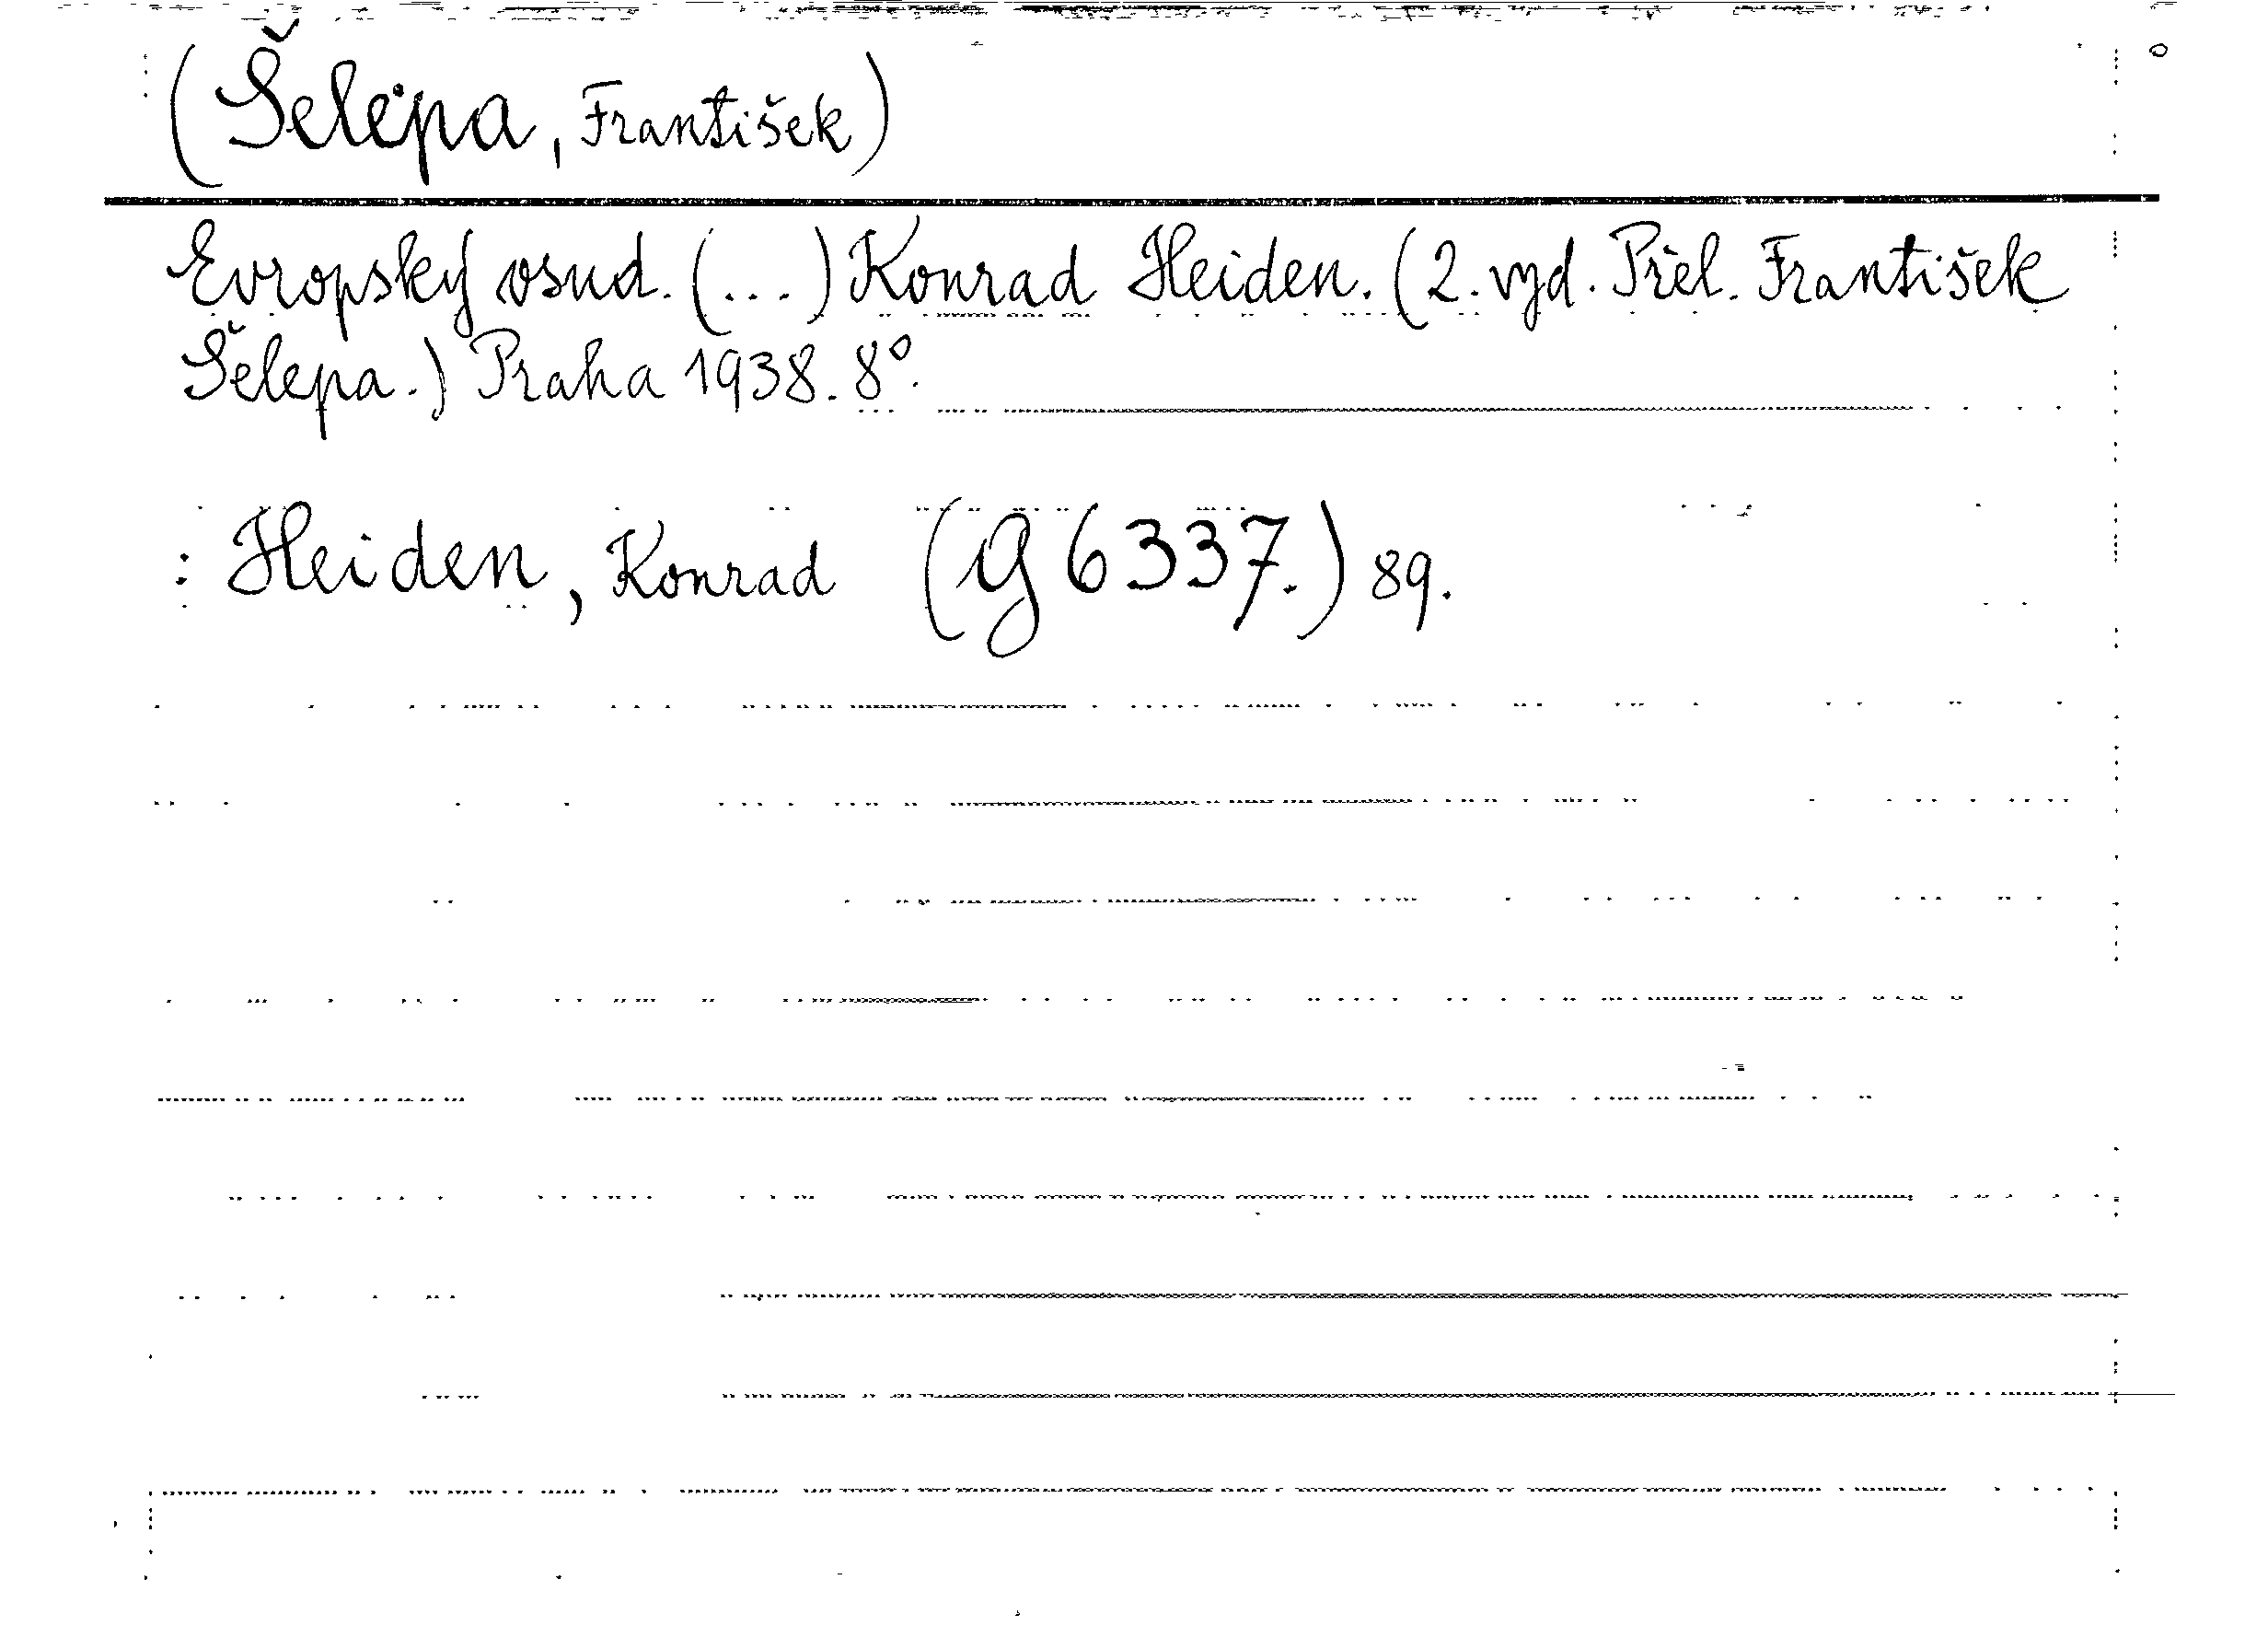 (Šelepa, František)
Evropský osud. (...) Konrad Heiden. (2. vyd. Přel. František
Šelepa.) Praha 1938. 8°.
: Heiden, Konrad (G 6337.) 89.